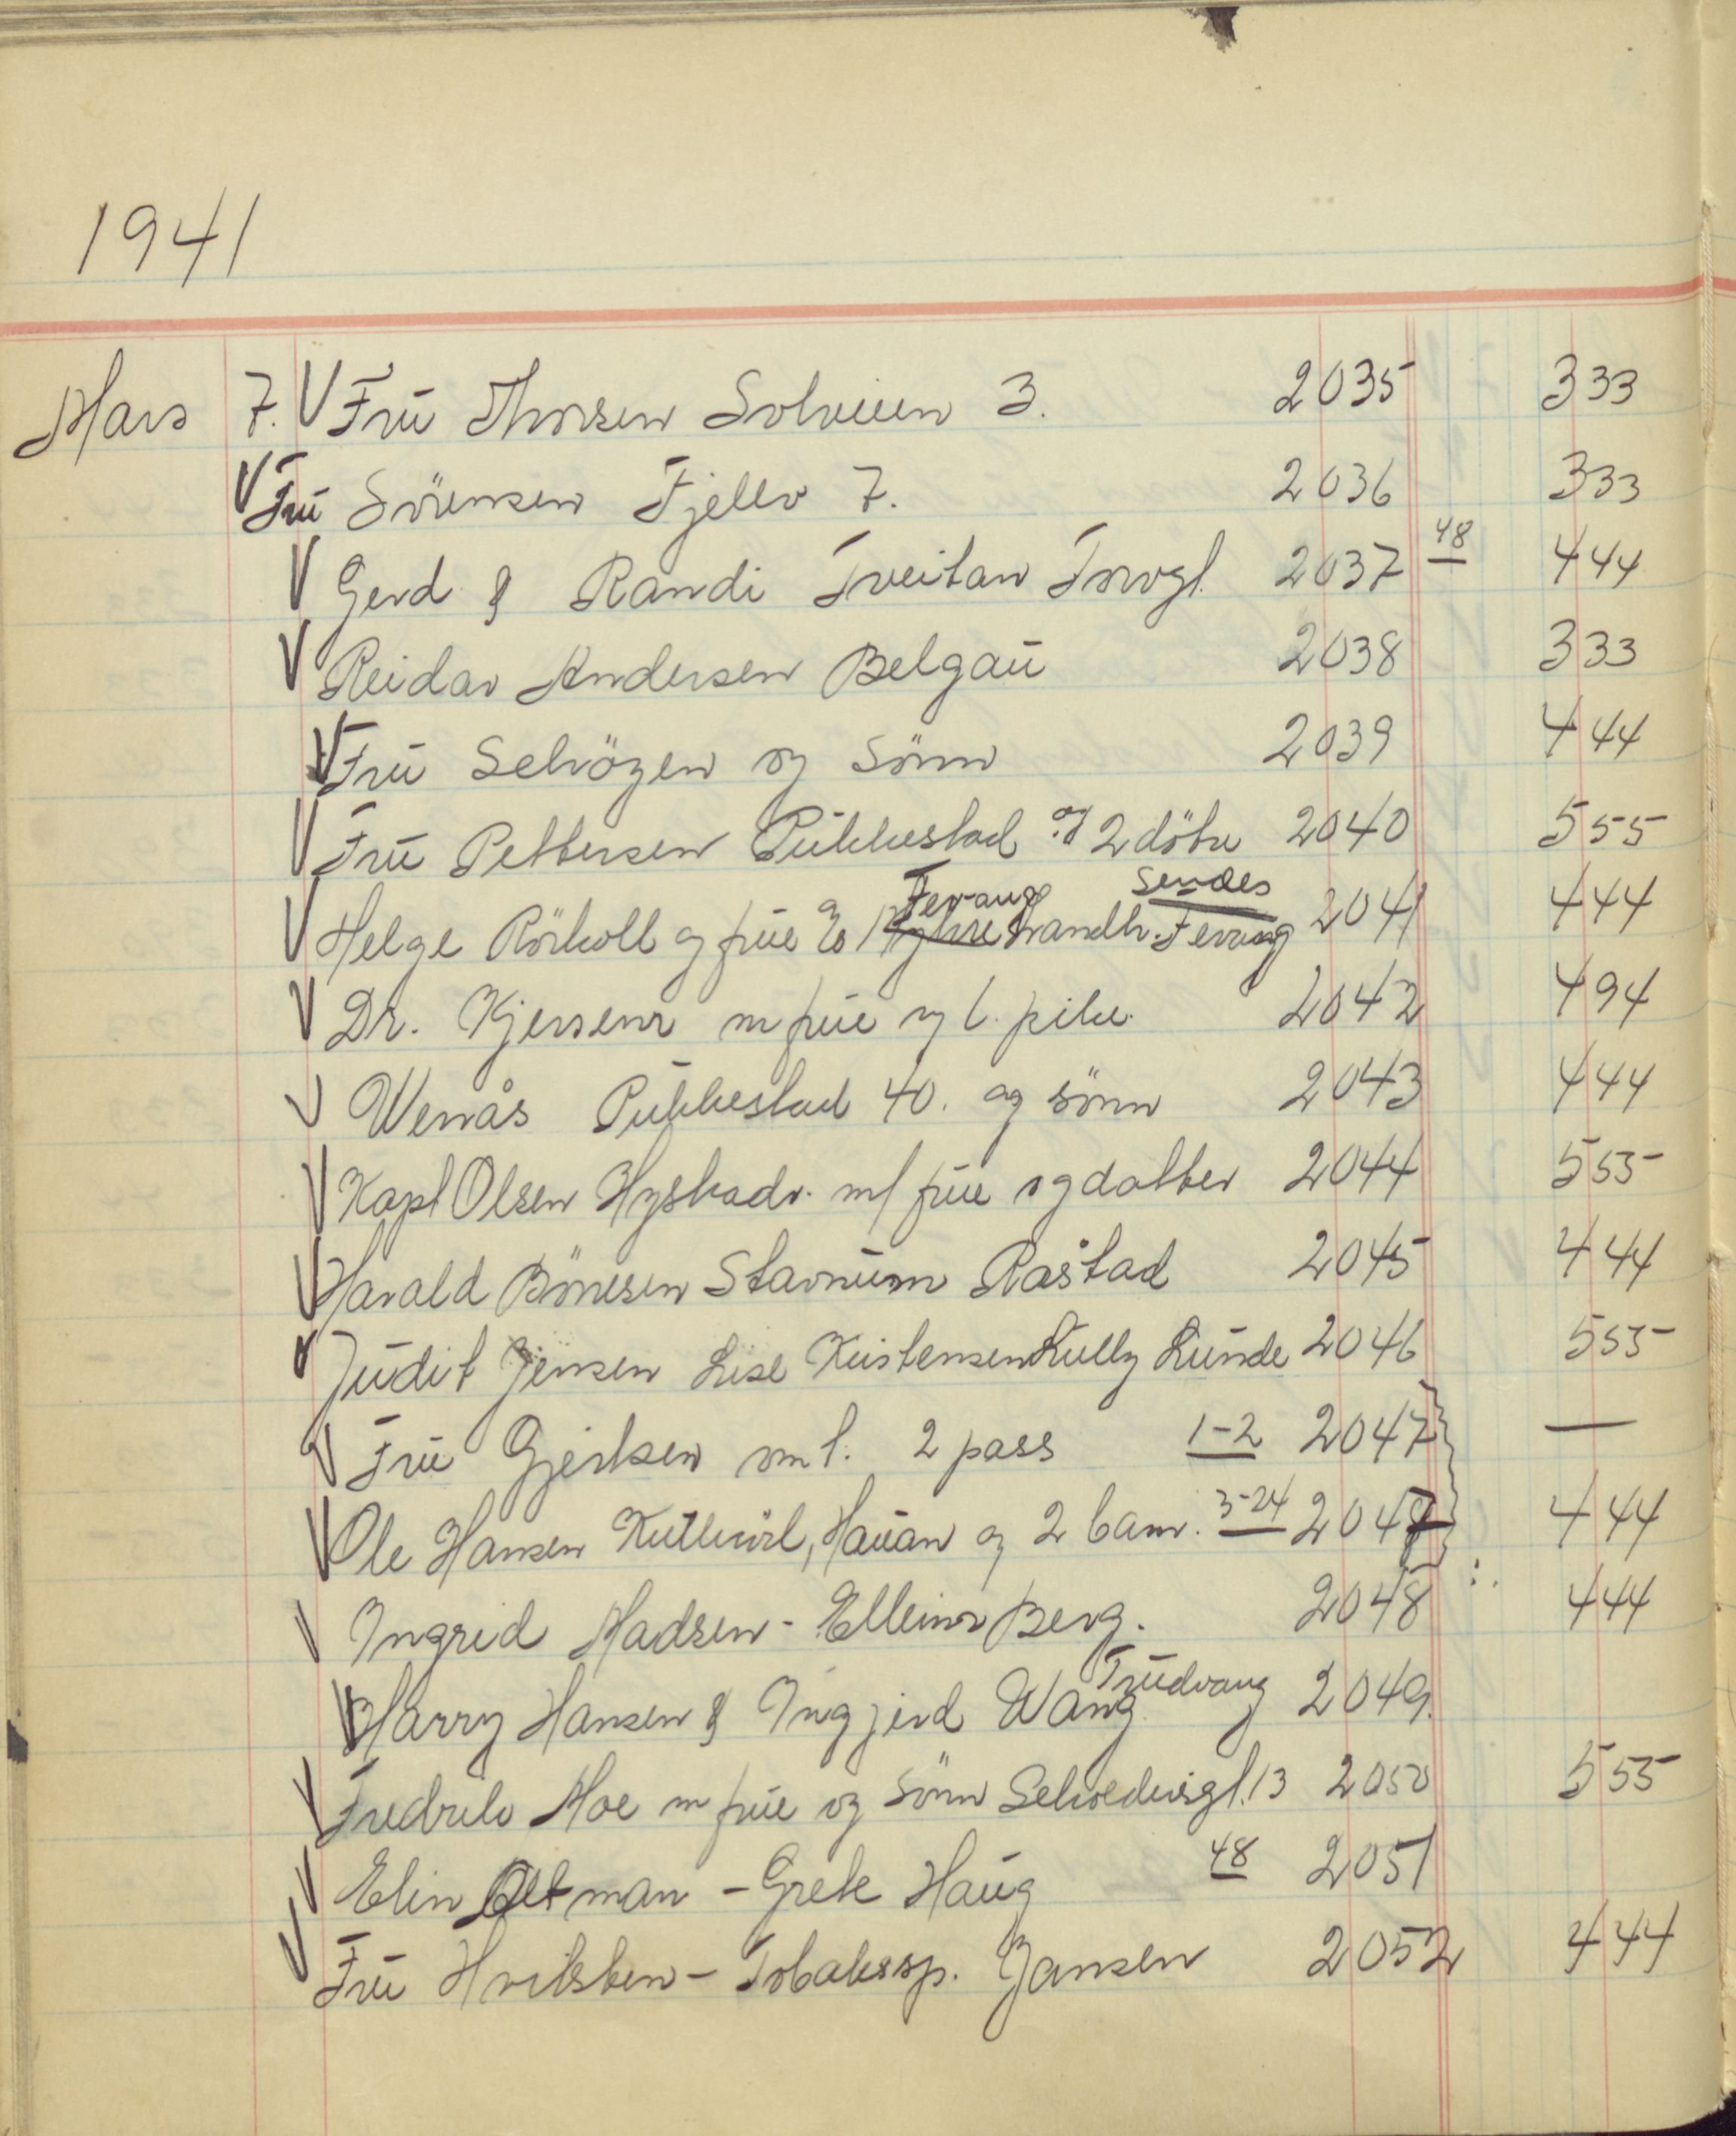 1941
Mars 7. Fru Thorsen Solveien 3. 2035 333
Fru Sörensen Fjellv 7. 2036 333
Gerd & Randi Tveitan Torvgl. 2037 48 444
Reidar Andersen Belgau 2038 333
Fru Selvögen og Sönn 2039 444
Fru Pettersen Pukkestad og 2 dötre 2040 555
Fevang Sendes
Helge Rörkoll og frue landh. Fevang 2041 444
Dr. m frue og l. pike. 2042 494
Wenås Pukkestad 40. og sönn 2043 444
Kapt Olsen Hystadv. m/ frue og datter 2044 555
Harald Bönesen Stavnum Råstad 2045 444
Judit Jensen Lise Kristensen Lully Lunde 2046 555
Fru Gjertsen om l. 2 pass 1-2 2047 —
Ole Hansen Hauan og 2 barn. 3-24 2047 444
Ingrid Madsen - Elleinor Berg. 2048 444
Harry Hansen & Ingjerd Wang Trudvang 2049.
Fredrik Moe m frue og Sönn 13 2050 555
Elin Oltman - Grete Haug 48 2051
Fru Hvitsten - Tobakssp. Jansen 2052 444